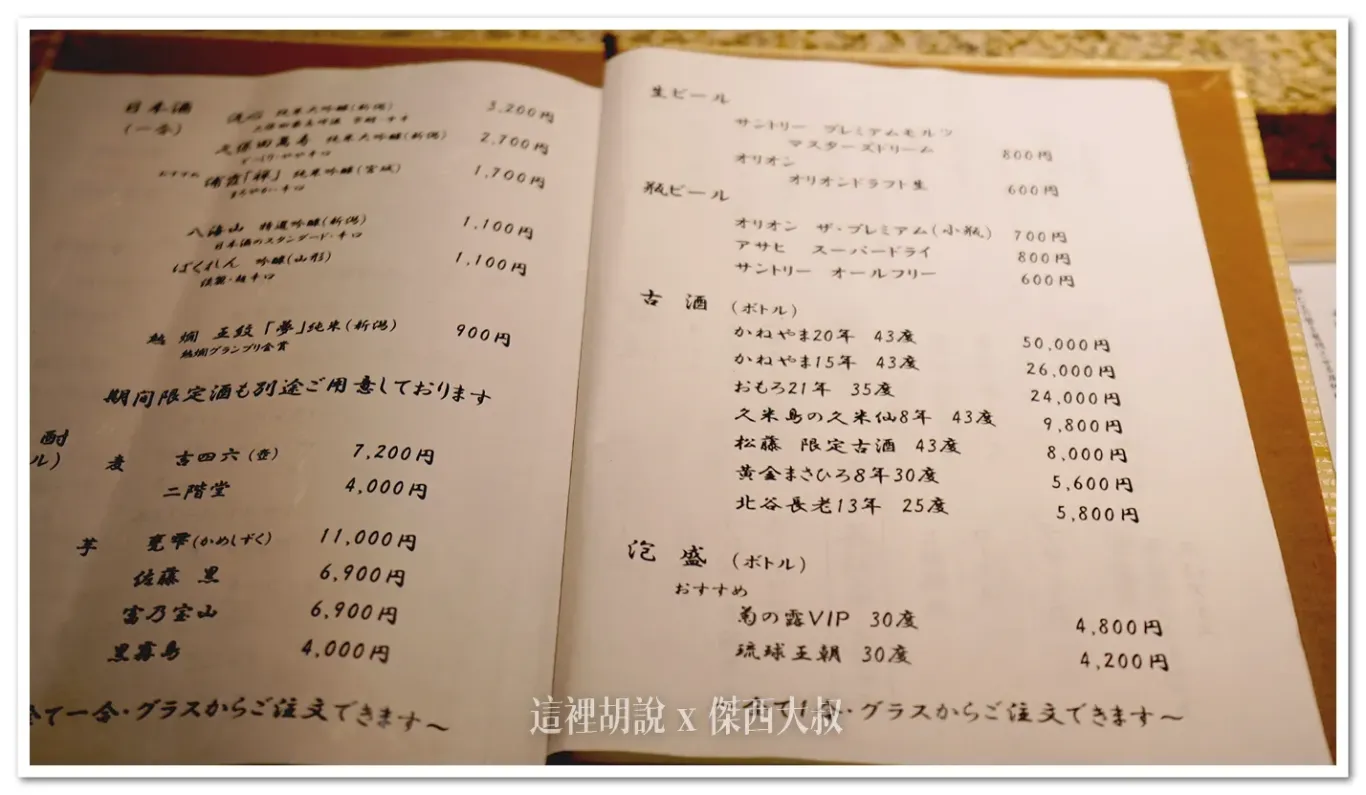 日本酒
(一合)
純米大吟醸(新潟) 3,200円
久保田萬寿 純米大吟醸(新潟) 2,700円
すっきり・やや辛口
おすすめ 浦霞「禅」 純米吟醸(宮城) 1,700円
まろやか・辛口
八海山 特選吟醸(新潟) 1,100円
日本酒のスタンダード・辛口
ばくれん 吟醸(山形) 1,100円
淡麗・超辛口
熱燗 王紋「夢」純米(新潟) 900円
熱燗グランプリ金賞
期間限定酒も別途ご用意しております
酎
ル)
麦 吉四六(壺) 7,200円
二階堂 4,000円
芋 甕雫(かめしずく) 11,000円
佐藤 黒 6,900円
富乃宝山 6,900円
黒霧島 4,000円
全て一合・グラスからご注文できます~
生ビール
サントリー プレミアムモルツ
マスターズドリーム 800円
オリオン
オリオンドラフト生 600円
瓶ビール
オリオン ザ・プレミアム(小瓶) 700円
アサヒ スーパードライ 800円
サントリー オールフリー 600円
古酒 (ボトル)
かねやま20年 43度 50,000円
かねやま15年 43度 26,000円
おもろ21年 35度 24,000円
久米島の久米仙8年 43度 9,800円
松藤 限定古酒 43度 8,000円
黄金まさひろ8年30度 5,600円
北谷長老13年 25度 5,800円
泡盛 (ボトル)
おすすめ
菊の露VIP 30度 4,800円
琉球王朝 30度 4,200円
全て一合・グラスからご注文できます~
這裡胡說 x 傑西大叔